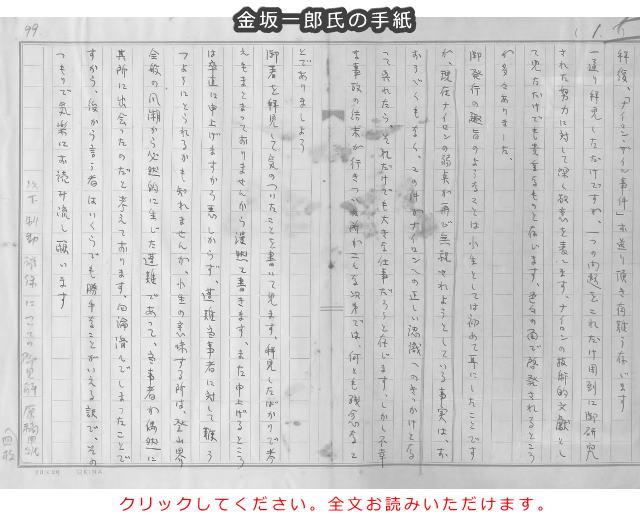 金坂一郎氏の手紙
99
拝復、「ナイロン事件」お送り頂き有難う存じます
一通り拝見しただけですが、一つの問題をこれだけ周到に御研究
された努力に対して深く敬意を表します、ナイロンの技術的文献とし
て見ただけでも貴重なものと存じます、色々の面で啓発されるところ
が多々ありました、
御発行の趣旨のようなことは小生としては初めて耳にしたことです
が、現在ナイロンの弱点が再び無視されようとしている事実は、お
そらくもなく、この件がナイロンへの正しい認識へのきっかけとな
って呉れたら、それだけでも大きな仕事だろうと存じます、しかし不幸
な事故の結末が行きつく所がこんな次第では、何とも残念なこ
とでありましょう
御著を拝見して気のついたことを書いて見ます、拝見したばかりで考
えもまとまっておりませんから漫然と書きます、また申上げるところ
は卒直に申上げますから悪しからず、遭難当事者に対して難う
つようにとられるかも知れませんが、小生の意味する所は、登山界
全般の風潮から必然的に生じた遭難であって、当事者が偶然に
其所に出会ったのだと考えております、勿論済んでしまったことで
すから、後から言う者はいくらでも勝手なことがいえる訳で、その
つもりで気楽にお読み流し願います
以下制動確保についての所見 原稿用紙
四枚
クリックしてください。全文お読みいただけます。